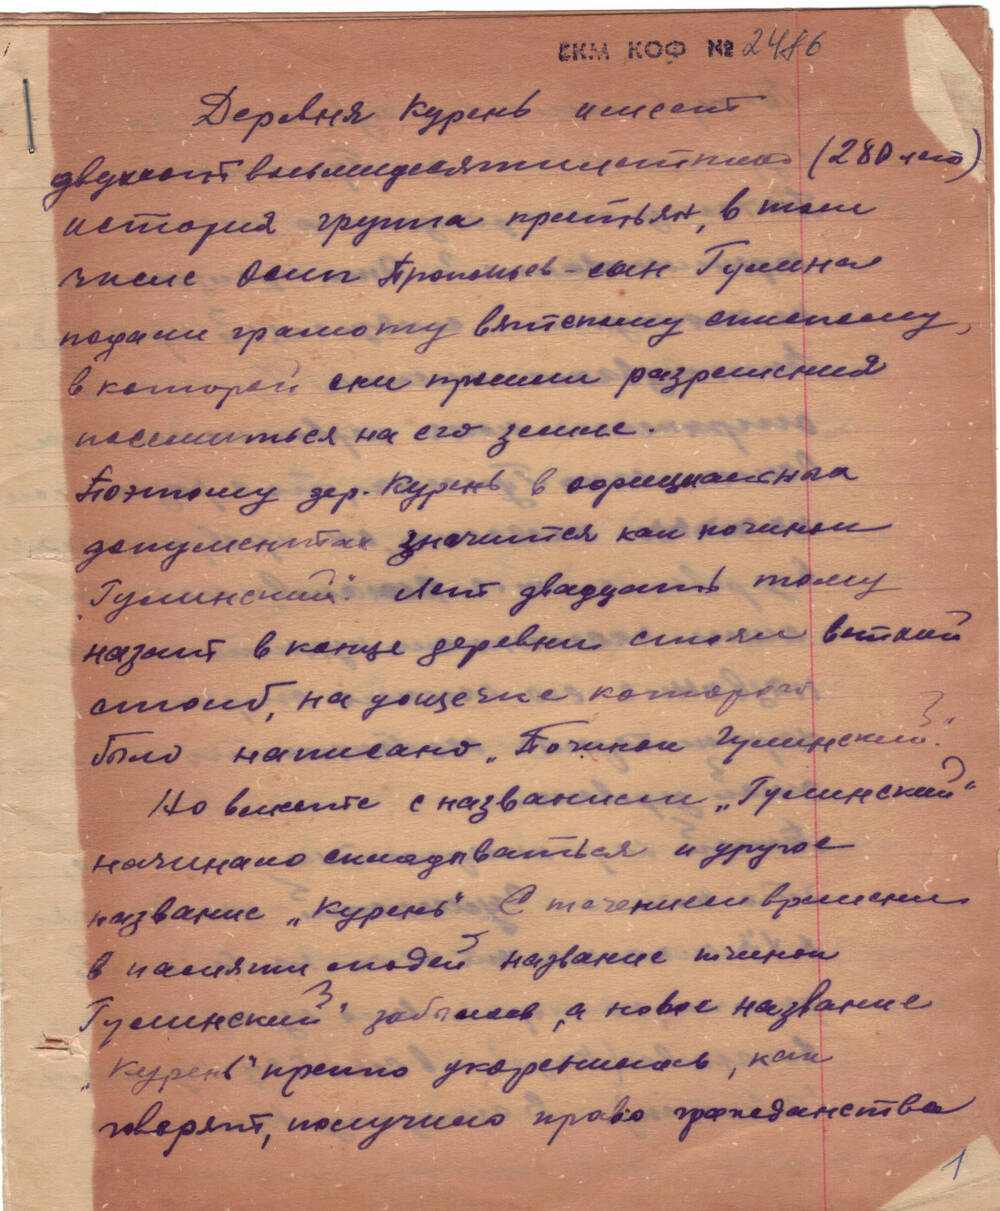 ЕКМ КОФ № 2486
Деревня Курень имеет
двухсот восьмидесятилетнюю (280 лет)
история группа крестьян, в том
числе Осип Прокопьев - сын Гулина
подали грамоту вятскому епископу,
в которой они просили разрешения
поселиться на его земле.
Поэтому дер. Курень в официальных
документах значится как починок
"Гулинский". Лет двадцать тому
назат в конце деревни стоял ветхий
столб, на дощечке которого
было написано „Починок Гулинский".
Но вместе с названием „Гулинский"
начинало складываться и другое
название „Курень" С течением времени
в памяти людей название починок
Гулинский" забылось, а новое название
„Курень" крепко укоренилось, как
говорят, получило право гражданства
1